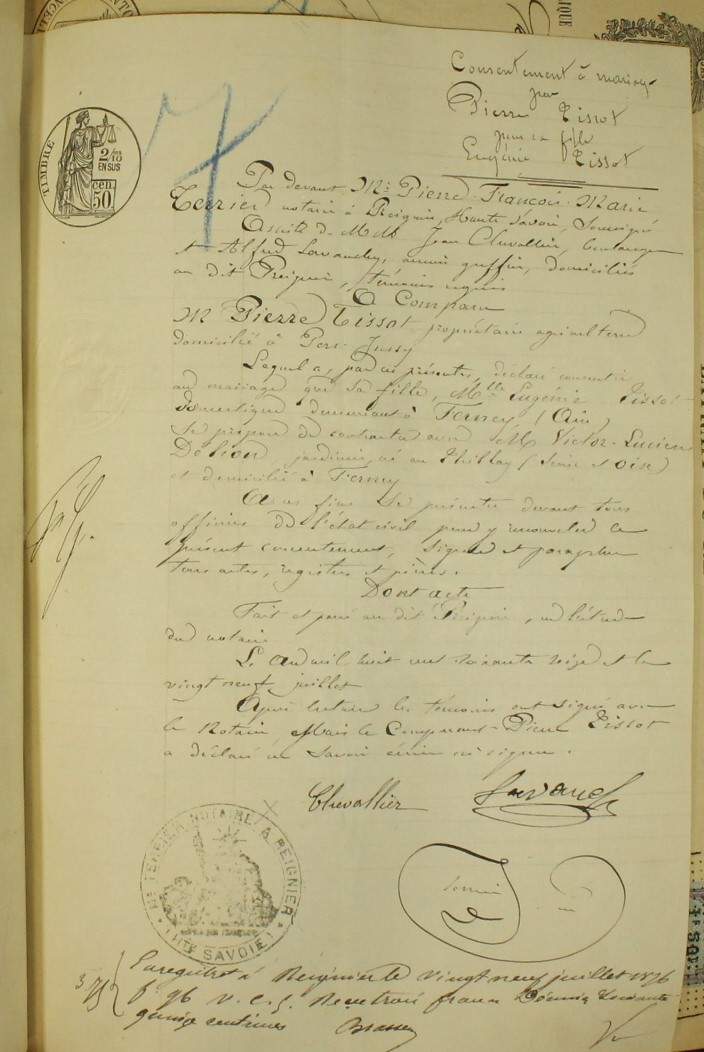 Consentement à mariage
par
Pierre Tissot
pour sa fille
Eugénie Tissot
7
TIMBRE
2/10
EN SUS
50 cen
Par devant Me Pierre François Marie
Terrier notaire à Reignier, Haute Savoie, Soussigné
Assisté de MM Jean Chevallier, boulanger
et Alfred Lavanchy, ancien greffier, domiciliés
au dit Reignier, témoins requis
A Comparu
M Pierre Tissot propriétaire agriculteur
domicilié à Pers-Jussy
Lequel a, par ces présentes, déclaré consentir
au mariage que sa fille, Mlle Eugénie Tissot
Domestique demeurant à Ferney (Ain)
Se propose de contracter avec M Victor-Lucien
jardinier, né au Thillay (Seine et Oise)
et domicilié à Ferney
A ces fins Se présenter devant tous
officiers de l'état civil pour y renouveler le
présent consentement, Signer et parapher
tous actes, registres et pièces.
Dont acte
Fait et passé au dit Reignier, en l'étude
du notaire
L'an mil huit cent soixante seize et le
vingt neuf juillet
Après lecture les témoins ont signé avec
le Notaire, Mais le Comparant Pierre Tissot
a déclaré ne Savoir écrire ni signer.
Chevallier
Lavanchy
Terrier
Me TERRIER NOTAIRE A REIGNIER
(HTE SAVOIE)
Enregistré à Reignier le Vingt neuf juillet 1876
fo 96 v. c. 5. Reçu trois francs Décimes soixante
quinze centimes
3,75